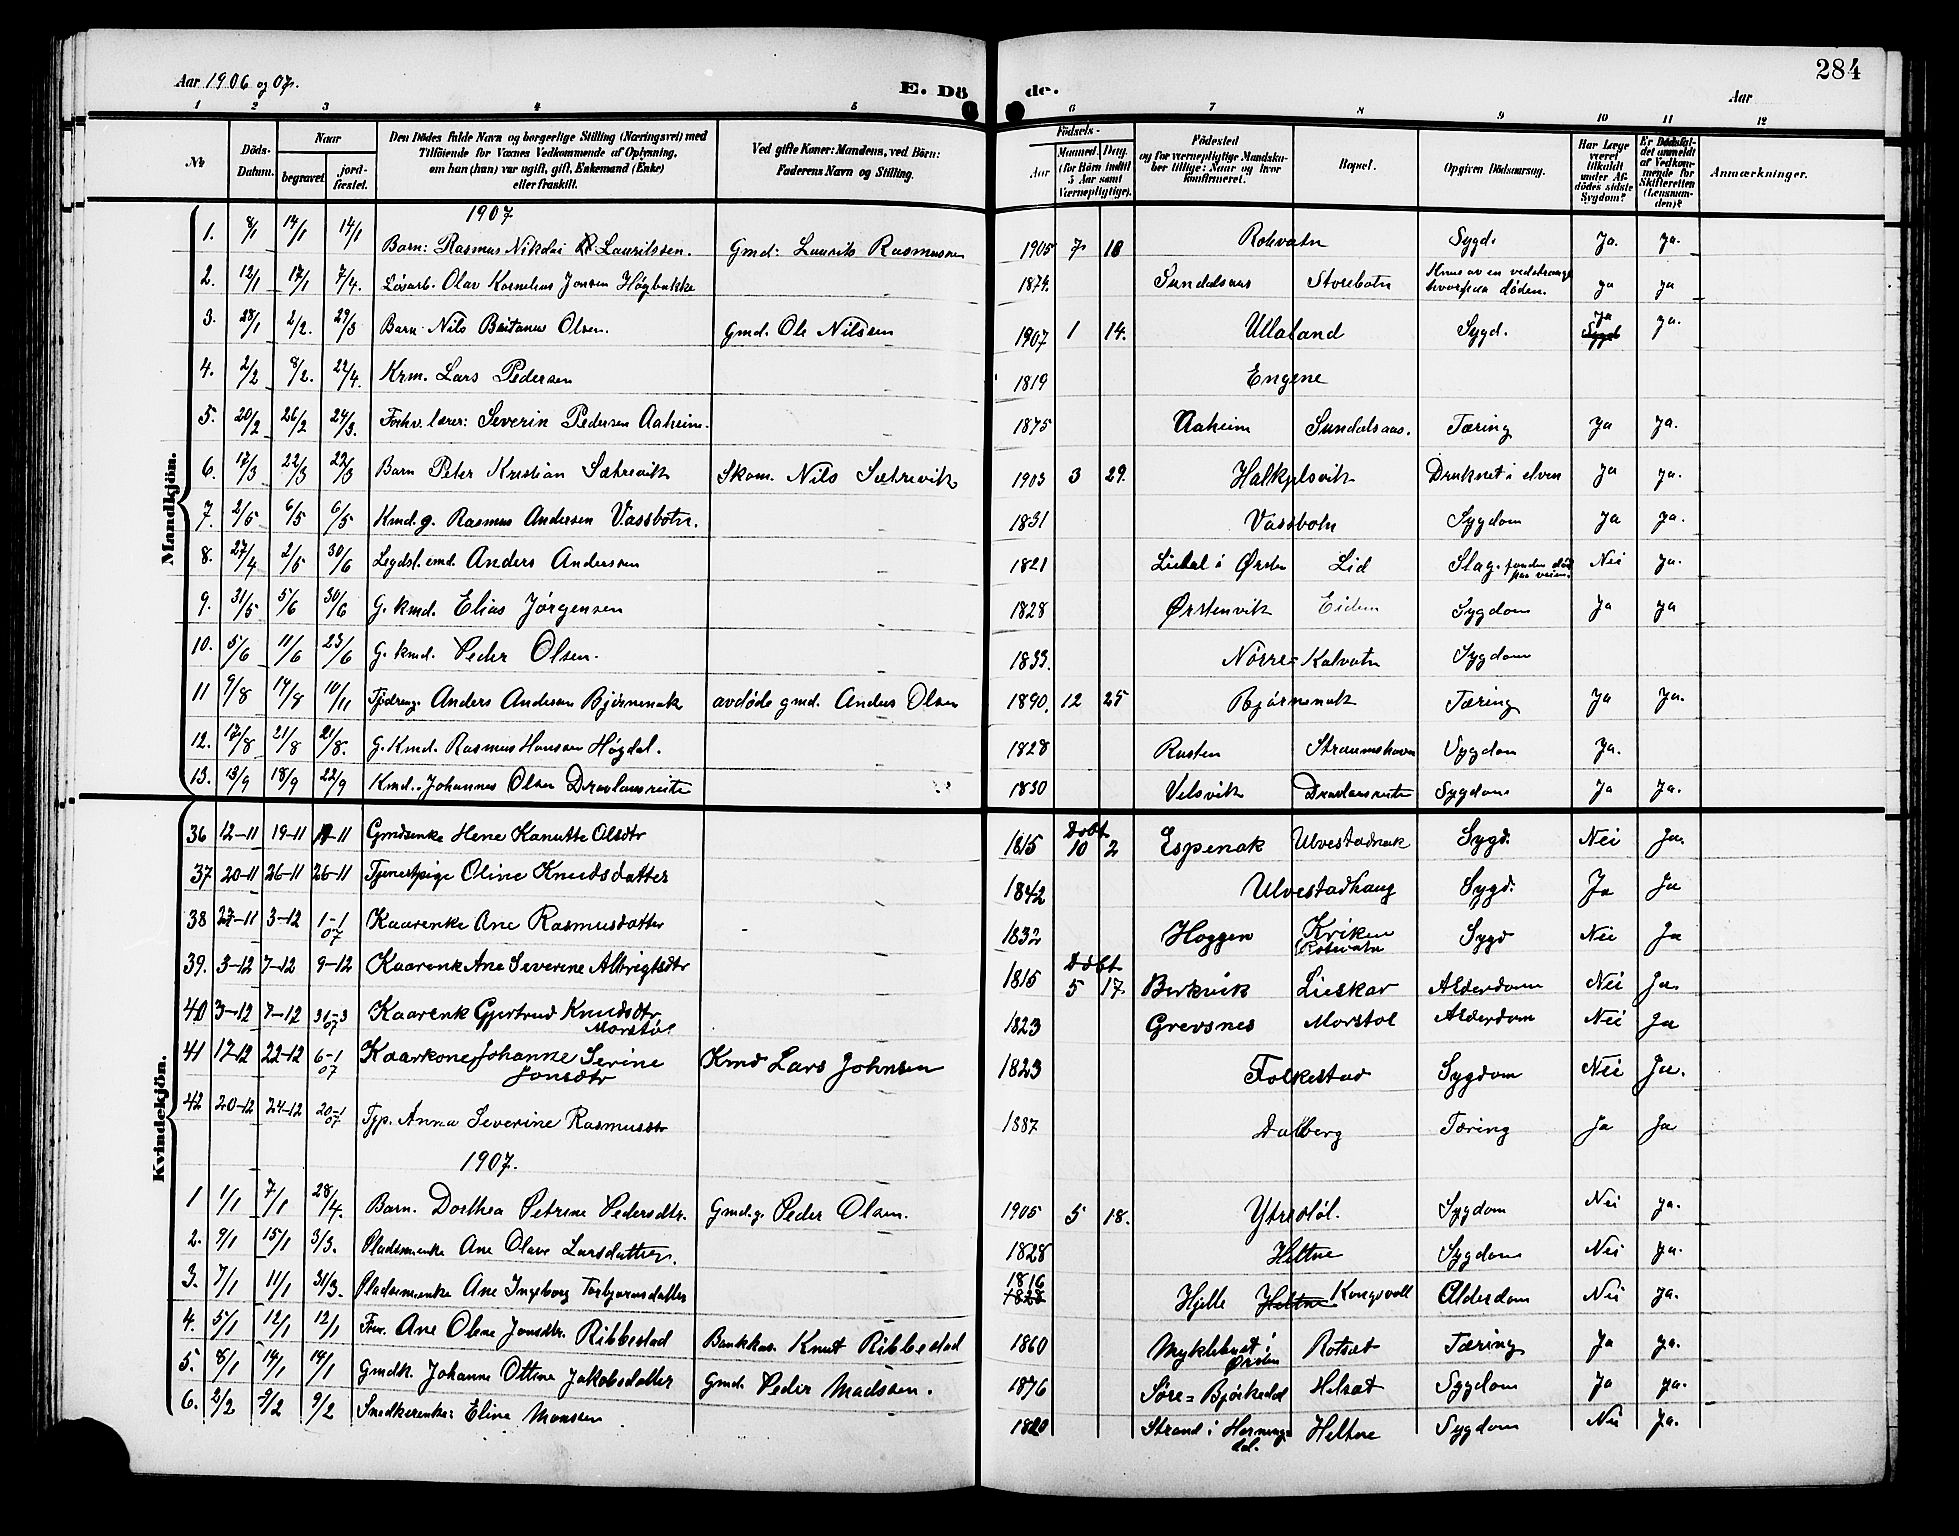 284
Aar 1906 og 07.
E. Dö de.
Aar
1 2 3 4 5 6 7 8 9 10 11 12
No
Döds-Datum.
Naar
begravet
jordfæstet.
Den Dödes fulde Navn og borgerlige Stilling (Næringsvei) med
Tilföiende for Voxnes Vedkommende af Oplysning,
om han (hun) var ugift, gift, Enkemand (Enke)
eller fraskilt.
Ved gifte Koner: Mandens, ved Börn:
Faderens Navn og Stilling.
Födsels-
Aar
Maaned. Dag.
(for Börn indtil
5 Aar samt
Værnepligtige).
Födested
og for værnepligtige Mandska-
ber tillige: Naar og hvor
konfirmeret.
Bopæl.
Opgiven Dödsaarsag.
Har Læge
været
tilkaldt
under Af-
dödes sidste
Sygdom?
Er Dödsfal-
det anmeldt
af Vedkom-
mende for
Skifteretten
(Lensman-
den)?
Anmærkninger.
Mandkjön.
1907
1. 8/1 14/1 14/1 Barn: Rasmus Nikolai Lauritssen. Gmd: Laurits Rasmussen 1905 7 10 Rotevatn Sygd. Ja. ja.
2. 12/1 17/1 7/4. Løsarb. Olav Kornelius Jonsen Høgbakke 1874. Sundalsaas Storebotn Knus av en vedstrange hvorpaa døden. ja ja
3. 28/1 2/2. 29/3 Barn Nils Bertanus Olsen. Gmd. Ole Nilssen 1907 1 14. Ullaland Sygd. Ja ja.
4. 2/2 8/2. 22/4. Krm. Lars Pedersen 1819 Engene
5. 20/2 26/2 24/3. Forhv. lærer: Severin Pedersen Aaheim. 1875 Aaheim Sundalsaas. Tæring ja ja.
6. 17/3 22/3 22/3 Barn Peter Kristian Sætrevik Skom. Nils Sætrevik 1903 3 29. Halkjelsvik Druknet i elven Ja ja.
7. 2/5 6/5 6/5 Kmd. g. Rasmus Andersen Vassbotn. 1831 Vassbotn Sygdom ja ja.
8. 27/4 2/5 30/6 Legdsl. emd. Anders Anderssen 1821 Liadal i Ørsten Lid Slag. funden død paa veien. Nei ja.
9. 31/5 5/6 30/6 G. kmd. Elias Jørgensen 1828 Ørstenvik Eidem Sygdom Ja ja
10. 5/6 11/6 23/6 G. kmd. Peder Olsen. 1833. Nørre= Kalvatn Sygdom
11 9/8 14/8 10/11 Tjødreng. Anders Andersen Bjørnenak avdøde gmd. Anders Olsen 1890. 12 25 Bjørnenak Tæring Ja ja.
12. 17/8 21/8 21/8. G. Kmd. Rasmus Hanssen Høgdal. 1828 Rusten Straumshavn Sygdom Ja.
13. 13/9 18/9 22/9 Kmd. Johannes Olsen Dravlausreite 1830 Velsvik Dravlausreite Sygdom Ja ja.
Kvindekjön.
36 12-11 19-11 19-11 Gmdsenke Hene Kanutte Olsdtr 1815 Døbt 10 2 Espenak Ulvestadnak Sygd. Nei Ja.
37 20-11 26-11 26-11 Tjenestpige Oline Knudsdatter 1842 Ulvestadhaug Sygd. Ja Ja
38 27-11 3-12 1-1 07 Kaarenke Ane Rasmusdatter 1832 Hoggen Kriken Rotevatn Sygd Nei Ja
39. 3-12 7-12 9-12 Kaarenk Ane Severine Albrigtsdtr 1815 Døbt 5 17. Berkvik Lieskar Alderdom Nei Ja.
40 3-12 7-12 31-3 07 Kaarenk Gjertrud Knudsdtr Morstøl 1823 Grevsnes Morstøl Alderdom Nei Ja
41 17-12 22-12 6-1 07 Kaarkone Johanne Serine Jonsdtr Kmd Lars Johnsen 1823 Folkestad Sygdom Nei Ja.
42 20-12 24-12 20-1 07 Tjp. Anna Severine Rasmusdtr 1887 Dalberg Tæring Ja Ja
1907.
1 1/1 7/1 28/4. Barn. Dorthea Petrine Pedersdtr. Gmd. g. Peder Olsen. 1905 5 18. Ytrestøl. Sygdom Nei ja.
2. 9/1 15/1 3/3. Pladsmenke Ane Olave Larsdatter. 1828 Heltne Sygdom Nei ja.
3. 7/1 11/1 31/3. Pladsmenke Ane Ingeborg Torbjørnsdatter 1816 1828 Hjelle Heltne Kongsvoll Alderdom Nei ja.
4. 5/1 12/1 12/1 Fru. Ane Oline Jonsdtr. Ribbestad Bankkas. Knut Ribbestad 1860 Myklebust i Ørsten Rotsæt Tæring Ja ja.
5. 8/1 14/1 14/1 Gmdk. Johanne Ottine Jakobsdatter Gmd. Peder Madssen. 1876 Søre= Bjørkedal Helsæt Sygdom Ja ja.
6. 2/2 9/2 9/2 Snedkerenke: Eline Monssen 1820 Strand i Hornings dal. Heltne Sygdom Nei Ja.